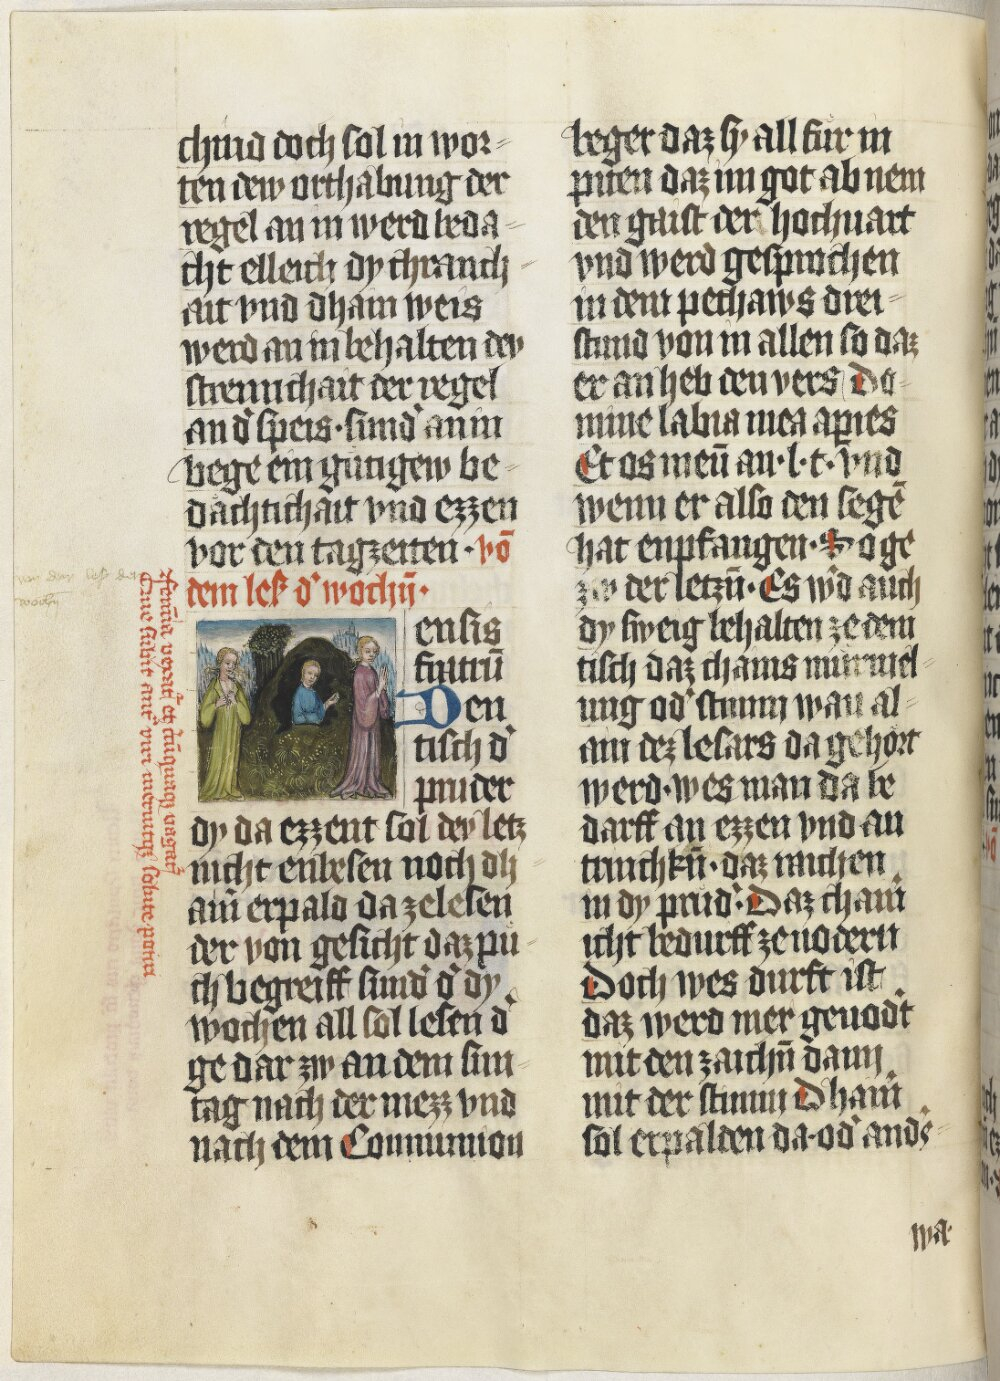 chind doch sol in wor-
ten dew orthabung der
regel an in werd beda-
cht elleich dy chranch-
ait vnd dhain weis
werd an in behalten dev
strennchait der regel
an d' speis · sund' an in
bege ein gutigew be-
dachtichait vnd ezzen
vor den tagzeiten · vō
dem lesz d' wochn̄ ·
ensis
fratrū
Den
tisch d'
pruder
dy da ezzent sol dev letz
nicht enlesen noch dh
ain̄ erpald da zelesen
der von gesicht daz pu-
ch begreiff sund' d' dy
wochen all sol lesen d'
ge dar zw an dem sun-
tag nach der mezz vnd
nach dem Communion
beger daz sy all fur in
piten daz im got ab nem
den gaist der hochuart
vnd werd gesprochen
in dem pethaws drei-
stund von in allen so daz
er an heb den vers Do-
mine labia mea apies
Et os meū an · l · t · vnd
wenn er also den segē
hat enpfangen · So ge
zw der letzn̄ · Es w'd auch
dy sweig behalten ze dem
tisch daz chains murmel-
ung od' stimm wan al-
ain dez lesars da gehort
werd · wes man da be
darff an ezzen vnd an
trinchkn̄ · daz raichen
in dy prud' · Daz chain̄
icht bedurff ze uodern
Doch wes durft ist
daz werd mer geuodt
mit den zaichn̄ dann
mit der stimm Dhain̄
sol erpalden da · od' anders-
wa ·